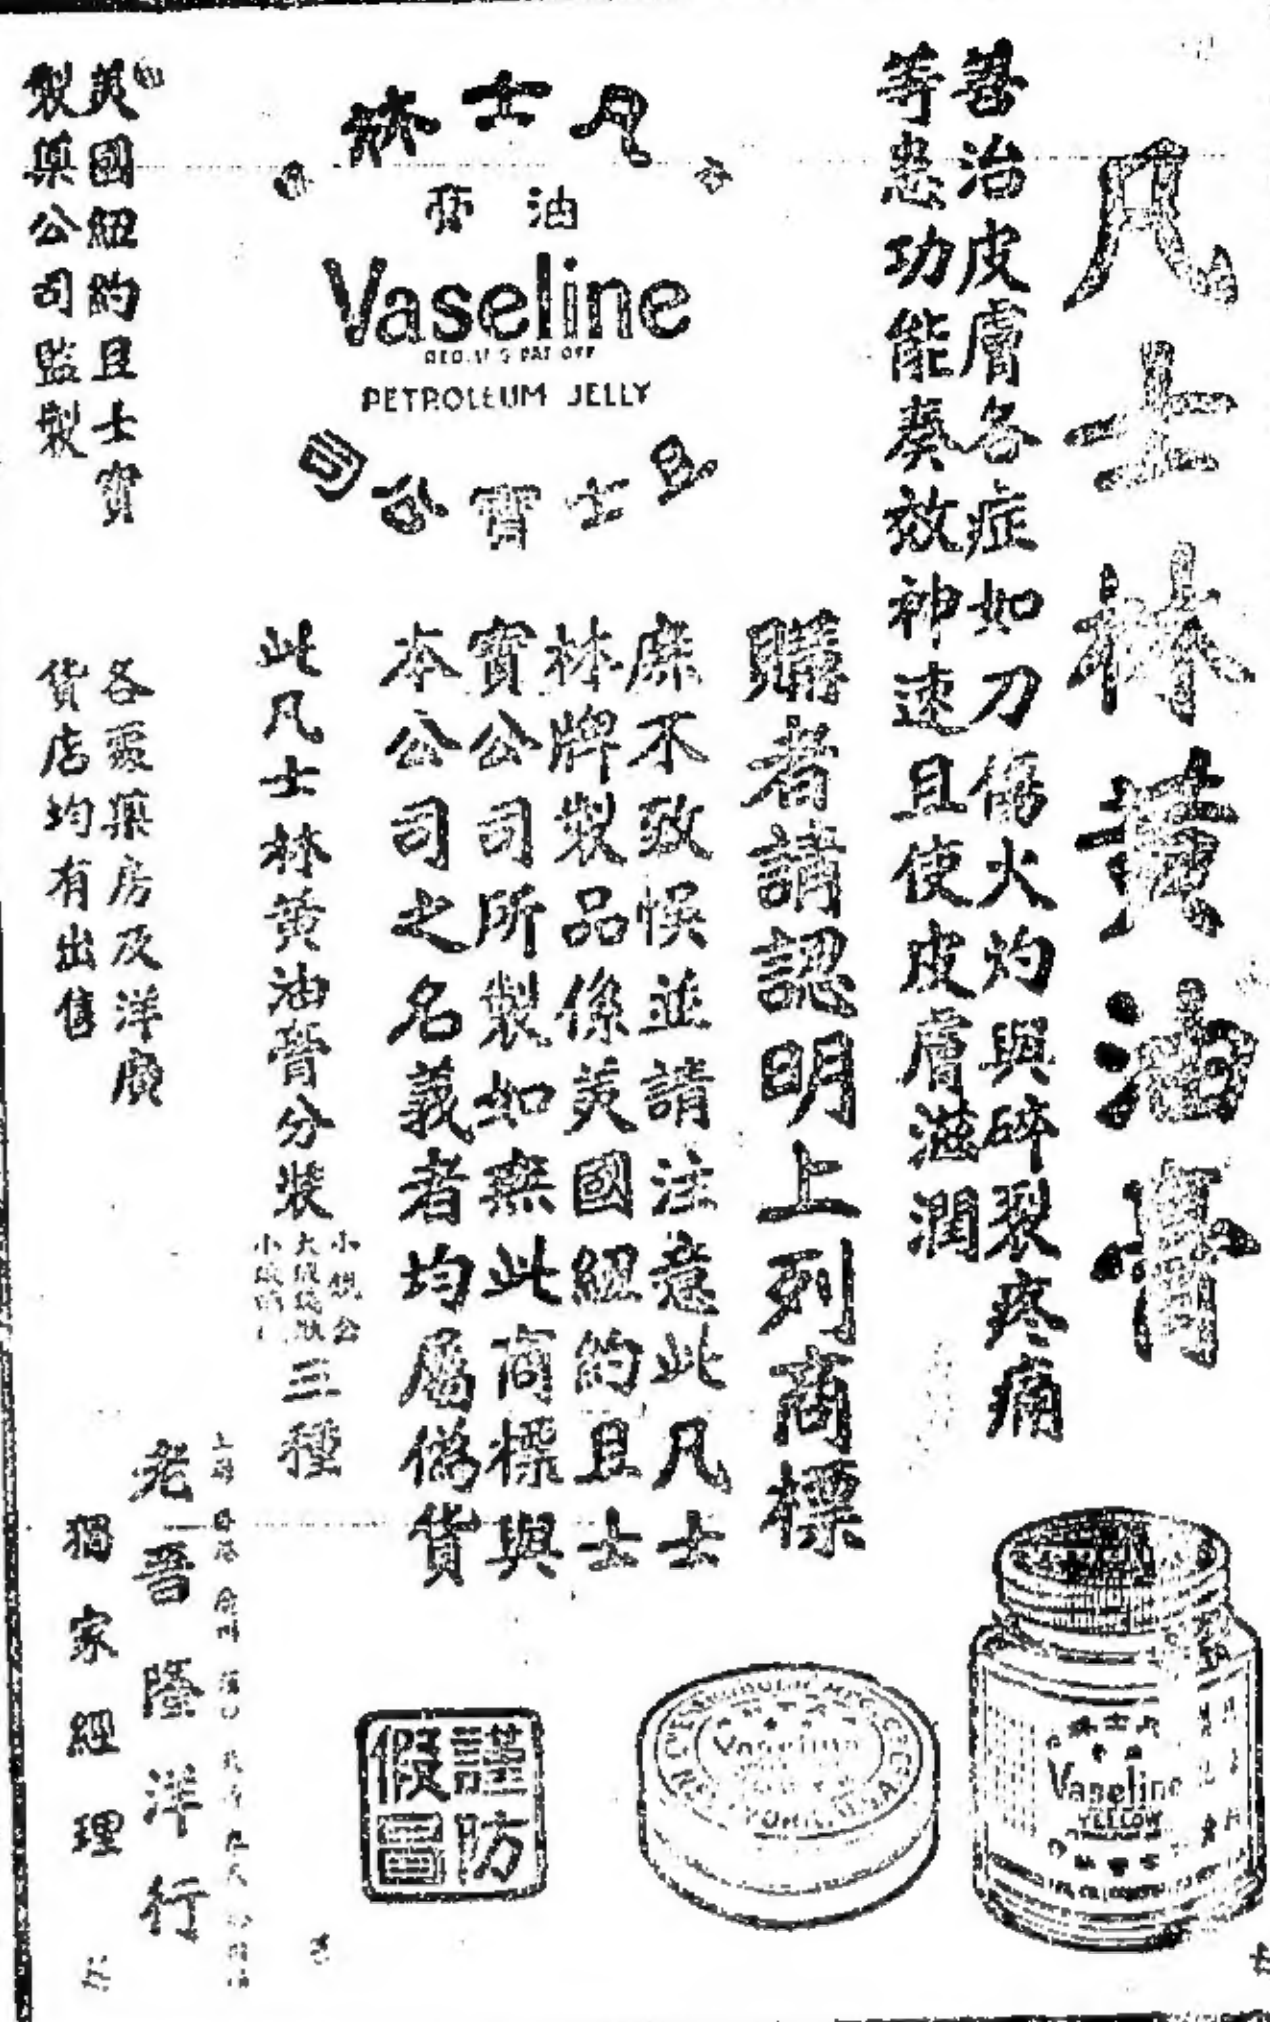 凡士林黃油膏
善治皮膚各症如刀傷火灼與碎裂疼痛
等患功能奏效神速且使皮膚滋潤
凡士林
油膏
Vaseline
REG. U S PAT OFF
PETROLEUM JELLY
且士寶公司
購者請認明上列商標
庶不致悞並請注意此凡士
林牌製品係美國紐約且士
寶公司所製如無此商標與
本公司之名義者均屬偽貨
此凡士林黃油膏分裝
三種
美國紐約且士寶
製藥公司監製
各藥房及洋廣
貨店均有出售
老晉隆洋行
獨家經理
謹防
假冒
Vaseline
Vaseline
YELLOW